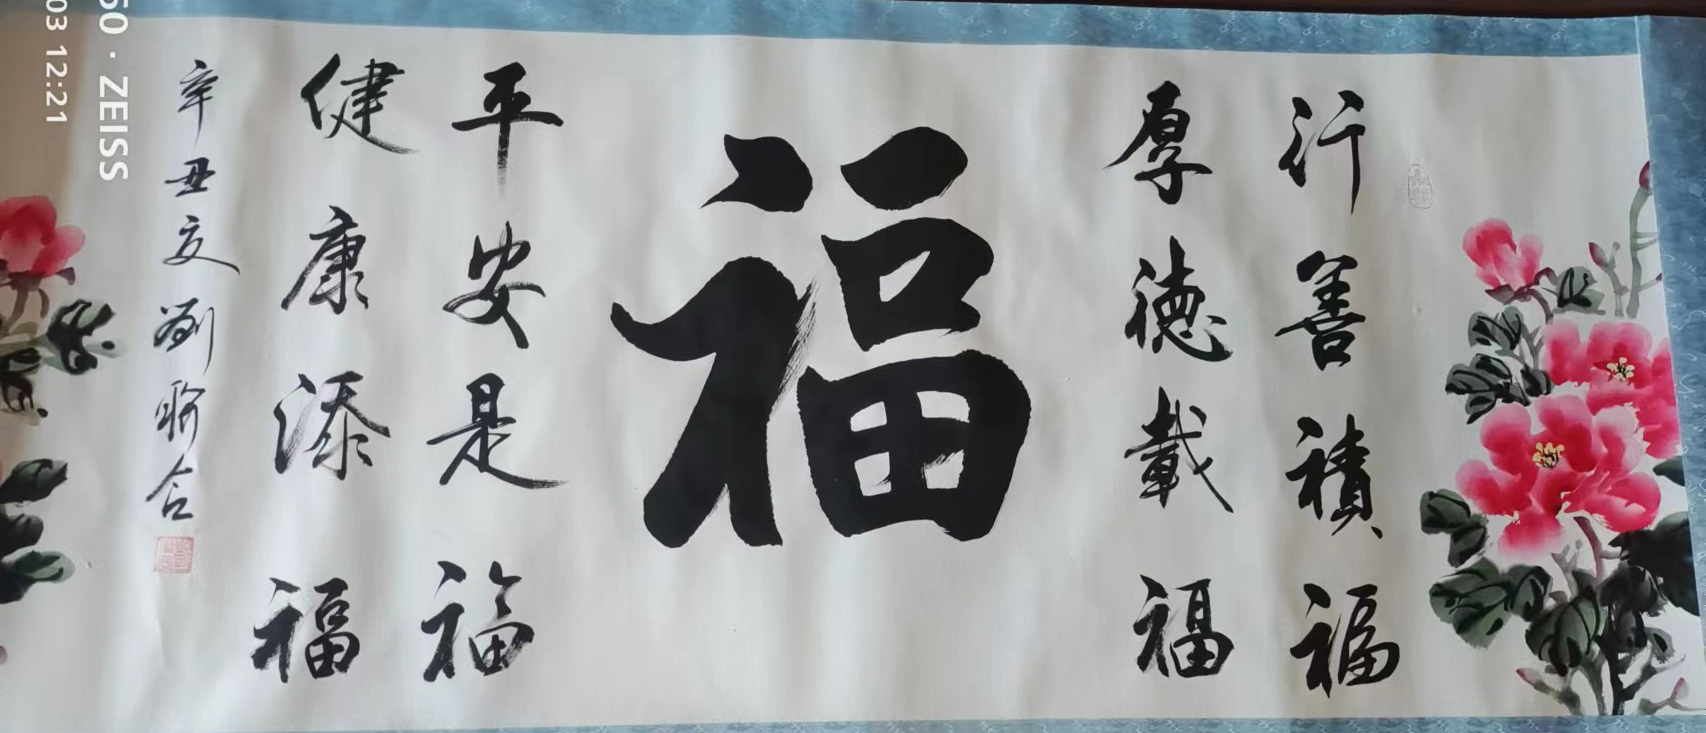 行善積福
厚德載福
福
平安是福
健康添福
辛丑夏劉
60 · ZEISS
03 12:21